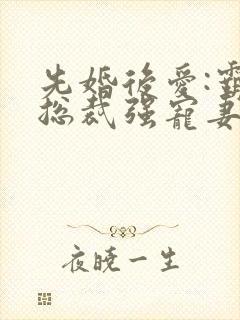 先婚後愛:霸
總裁强寵妻
夜曉一生